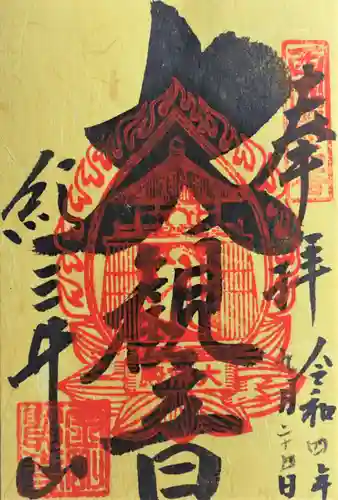 奉拝
令和四年
九月二十四日
大観音
紀三井山